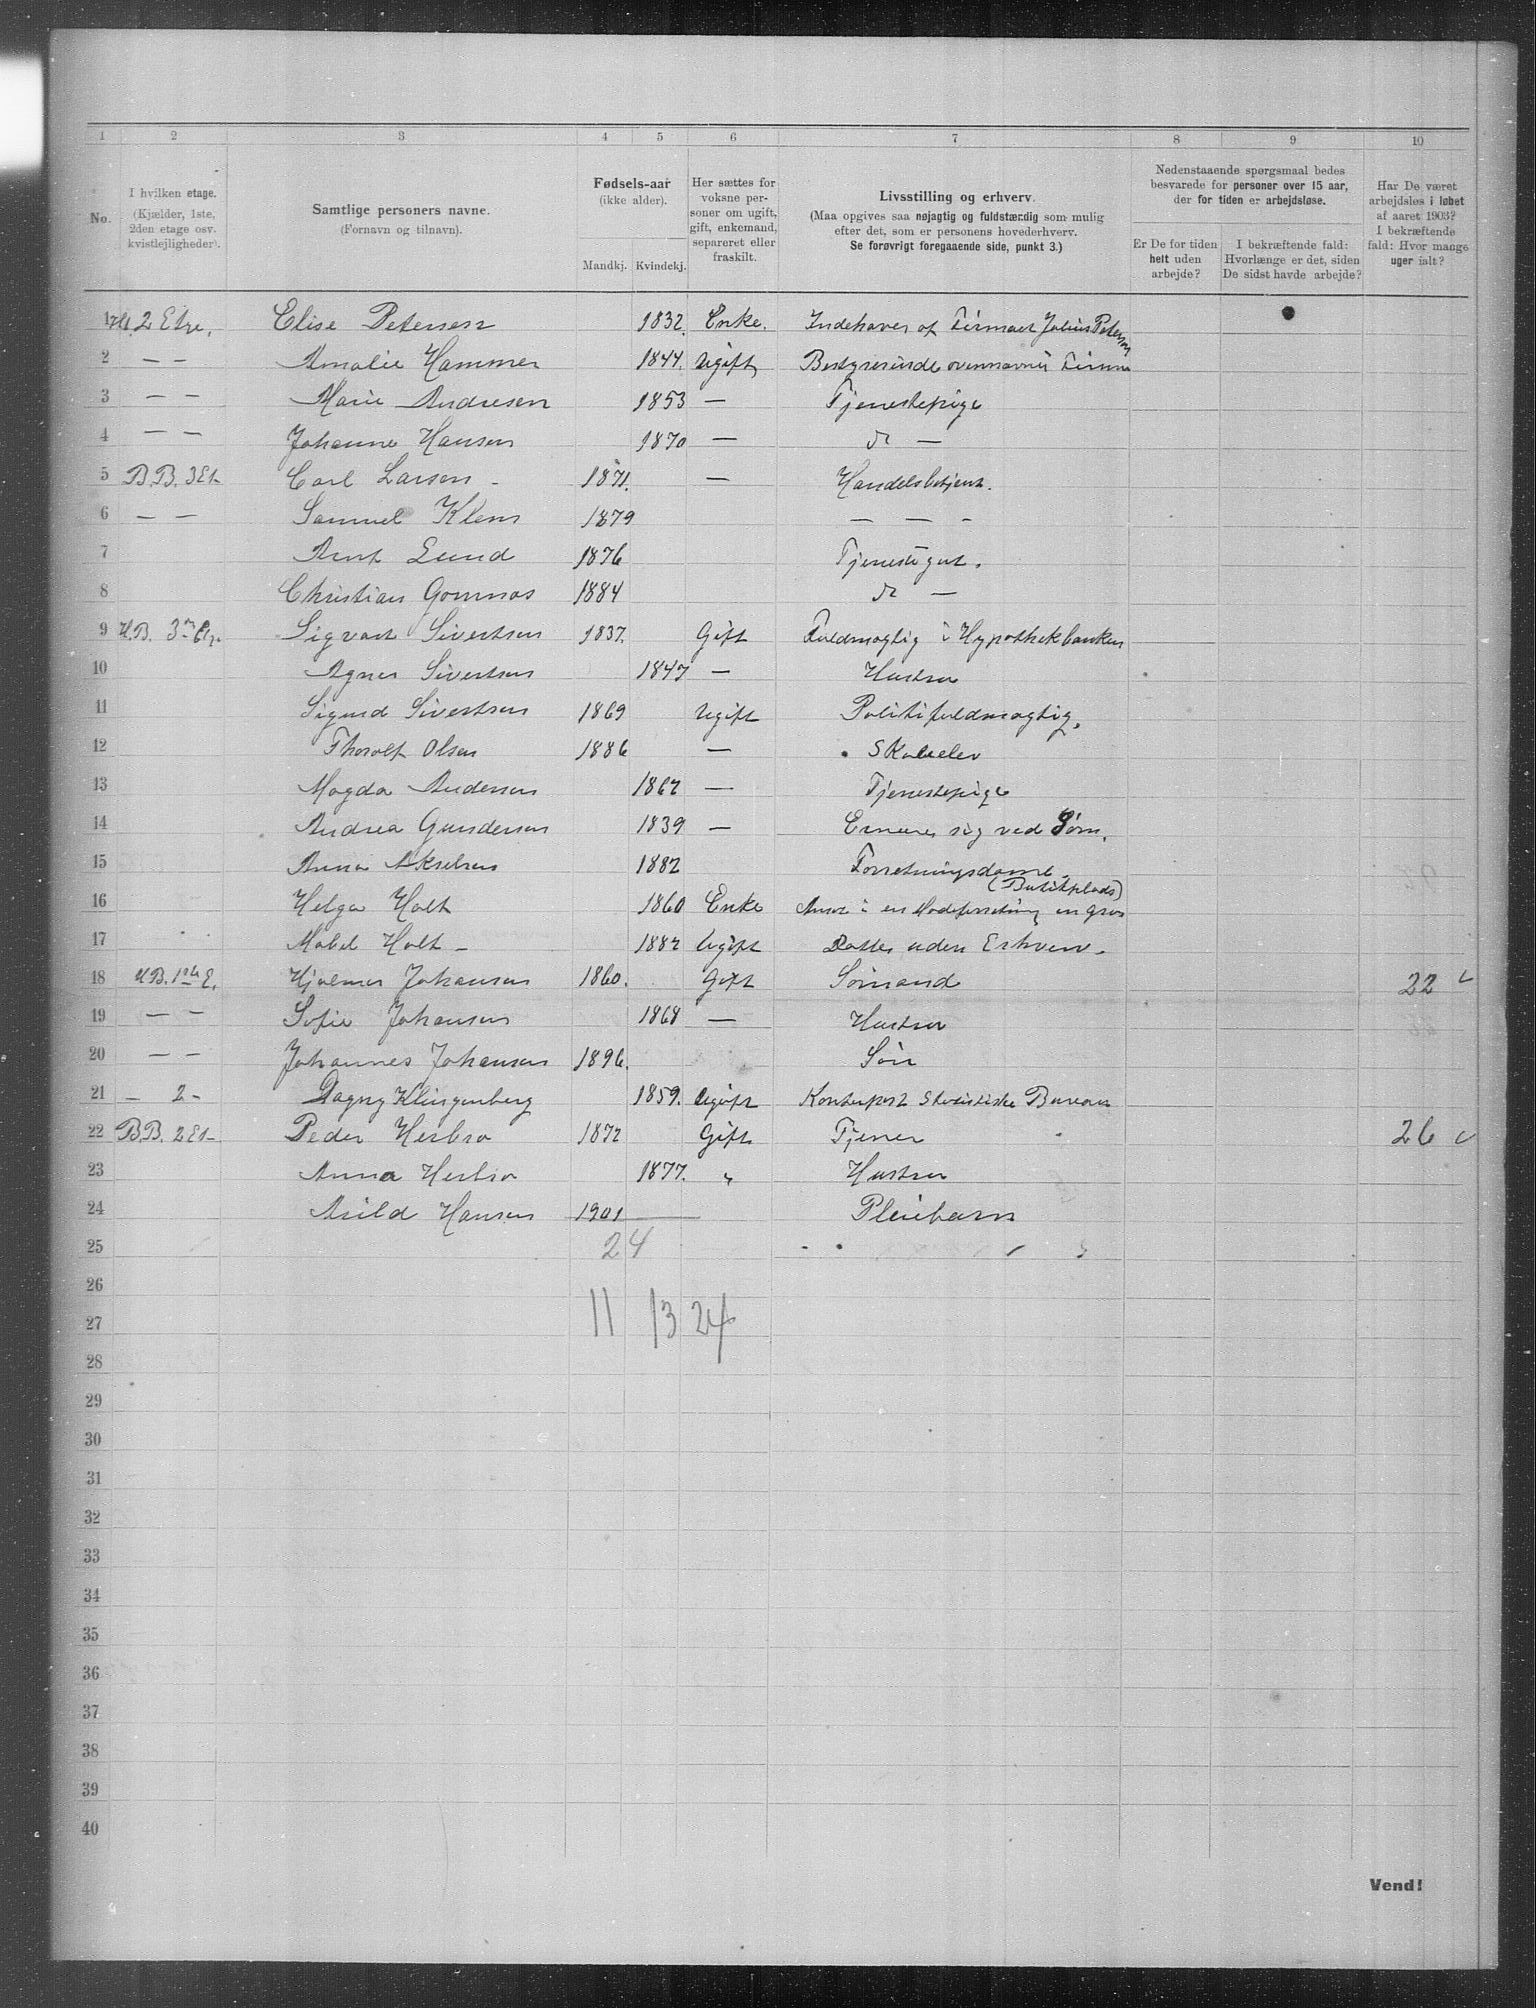 1 2 3 4 5 6 7 8 9 10
No.
I hvilken etage.
(Kjælder, 1ste, 2den etage osv. kvistlejligheder).
Samtlige personers navne.
(Fornavn og tilnavn).
Fødsels-aar
(ikke alder).
Mandkj. Kvindekj.
Her sættes for voksne personer om ugift, gift, enkemand, separeret eller fraskilt.
Livsstilling og erhverv.
(Maa opgives saa nøjagtig og fuldstændig som mulig efter det, som er personens hovederhverv.
Se forøvrigt foregaaende side, punkt 3.)
Nedenstaaende spørgsmaal bedes besvarede for personer over 15 aar, der for tiden er arbejdsløse.
Er De for tiden helt uden arbejde?
I bekræftende fald: Hvorlænge er det, siden De sidst havde arbejde?
Har De været arbejdsløs i løbet af aaret 1903? I bekræftende fald: Hvor mange uger ialt?
1 2 Etg. Elise Petersen 1832. Enke. Indehaver af Firmaet Julius Petersen
2 — — Amalie Hammer 1844. Ugift Bestyrerinde ovennævnte Firma
3 — — Marie Andresen 1853 — Tjenestepige
4 — — Johanne Hansen 1870 — do —
5 B.B. 3 Et. Carl Larsen - 1871. — Handelsbetjent.
6 — — Samuel Klem 1879 — — -
7 Arnt Lund 1876 Tjenestegut.
8 Christian Gomnæs 1884 do —
9 H.B. 3 Etg. Sigvart Sivertsen 1837. Gift Fuldmægtig i Hypothekbanken
10 Agnes Sivertsen 1847 — Hustru
11 Sigurd Sivertsen 1869 Ugift Politifuldmægtig.
12 Thorolf Olsen 1886 — Skoleelev
13 Magda Andersen 1862 — Tjenestepige
14 Andrea Gundersen 1839 — Ernærer sig ved Søm.
15 Anna Akselsen 1882 Forretningsdame.
(Butikplads)
16 Helga Holt 1860 Enke Ansat i en Modeforretning en gros
17 Mabel Holt - 1882 Ugift Datter uden Erhverv.
18 H.B. 1ste E. Hjalmar Johansen 1860. Gift Sømand 22
19 — — Sofie Johansen 1868 — Hustru
20 — — Johannes Johansen 1896. Søn
21 — 2 - Dagny Klingenberg 1859. Ugift Kontorpost Statistiske Bureau
22 B.B. 2 Et- Peder Herbro 1872 Gift Tjener 26
23 Anna Herbro 1877. " Hustru
24 Arild Hansen 1901 Pleiebarn
25 24
26
27 11 13 24
28
29
30
31
32
33
34
35
36
37
38
39
40
Vend!